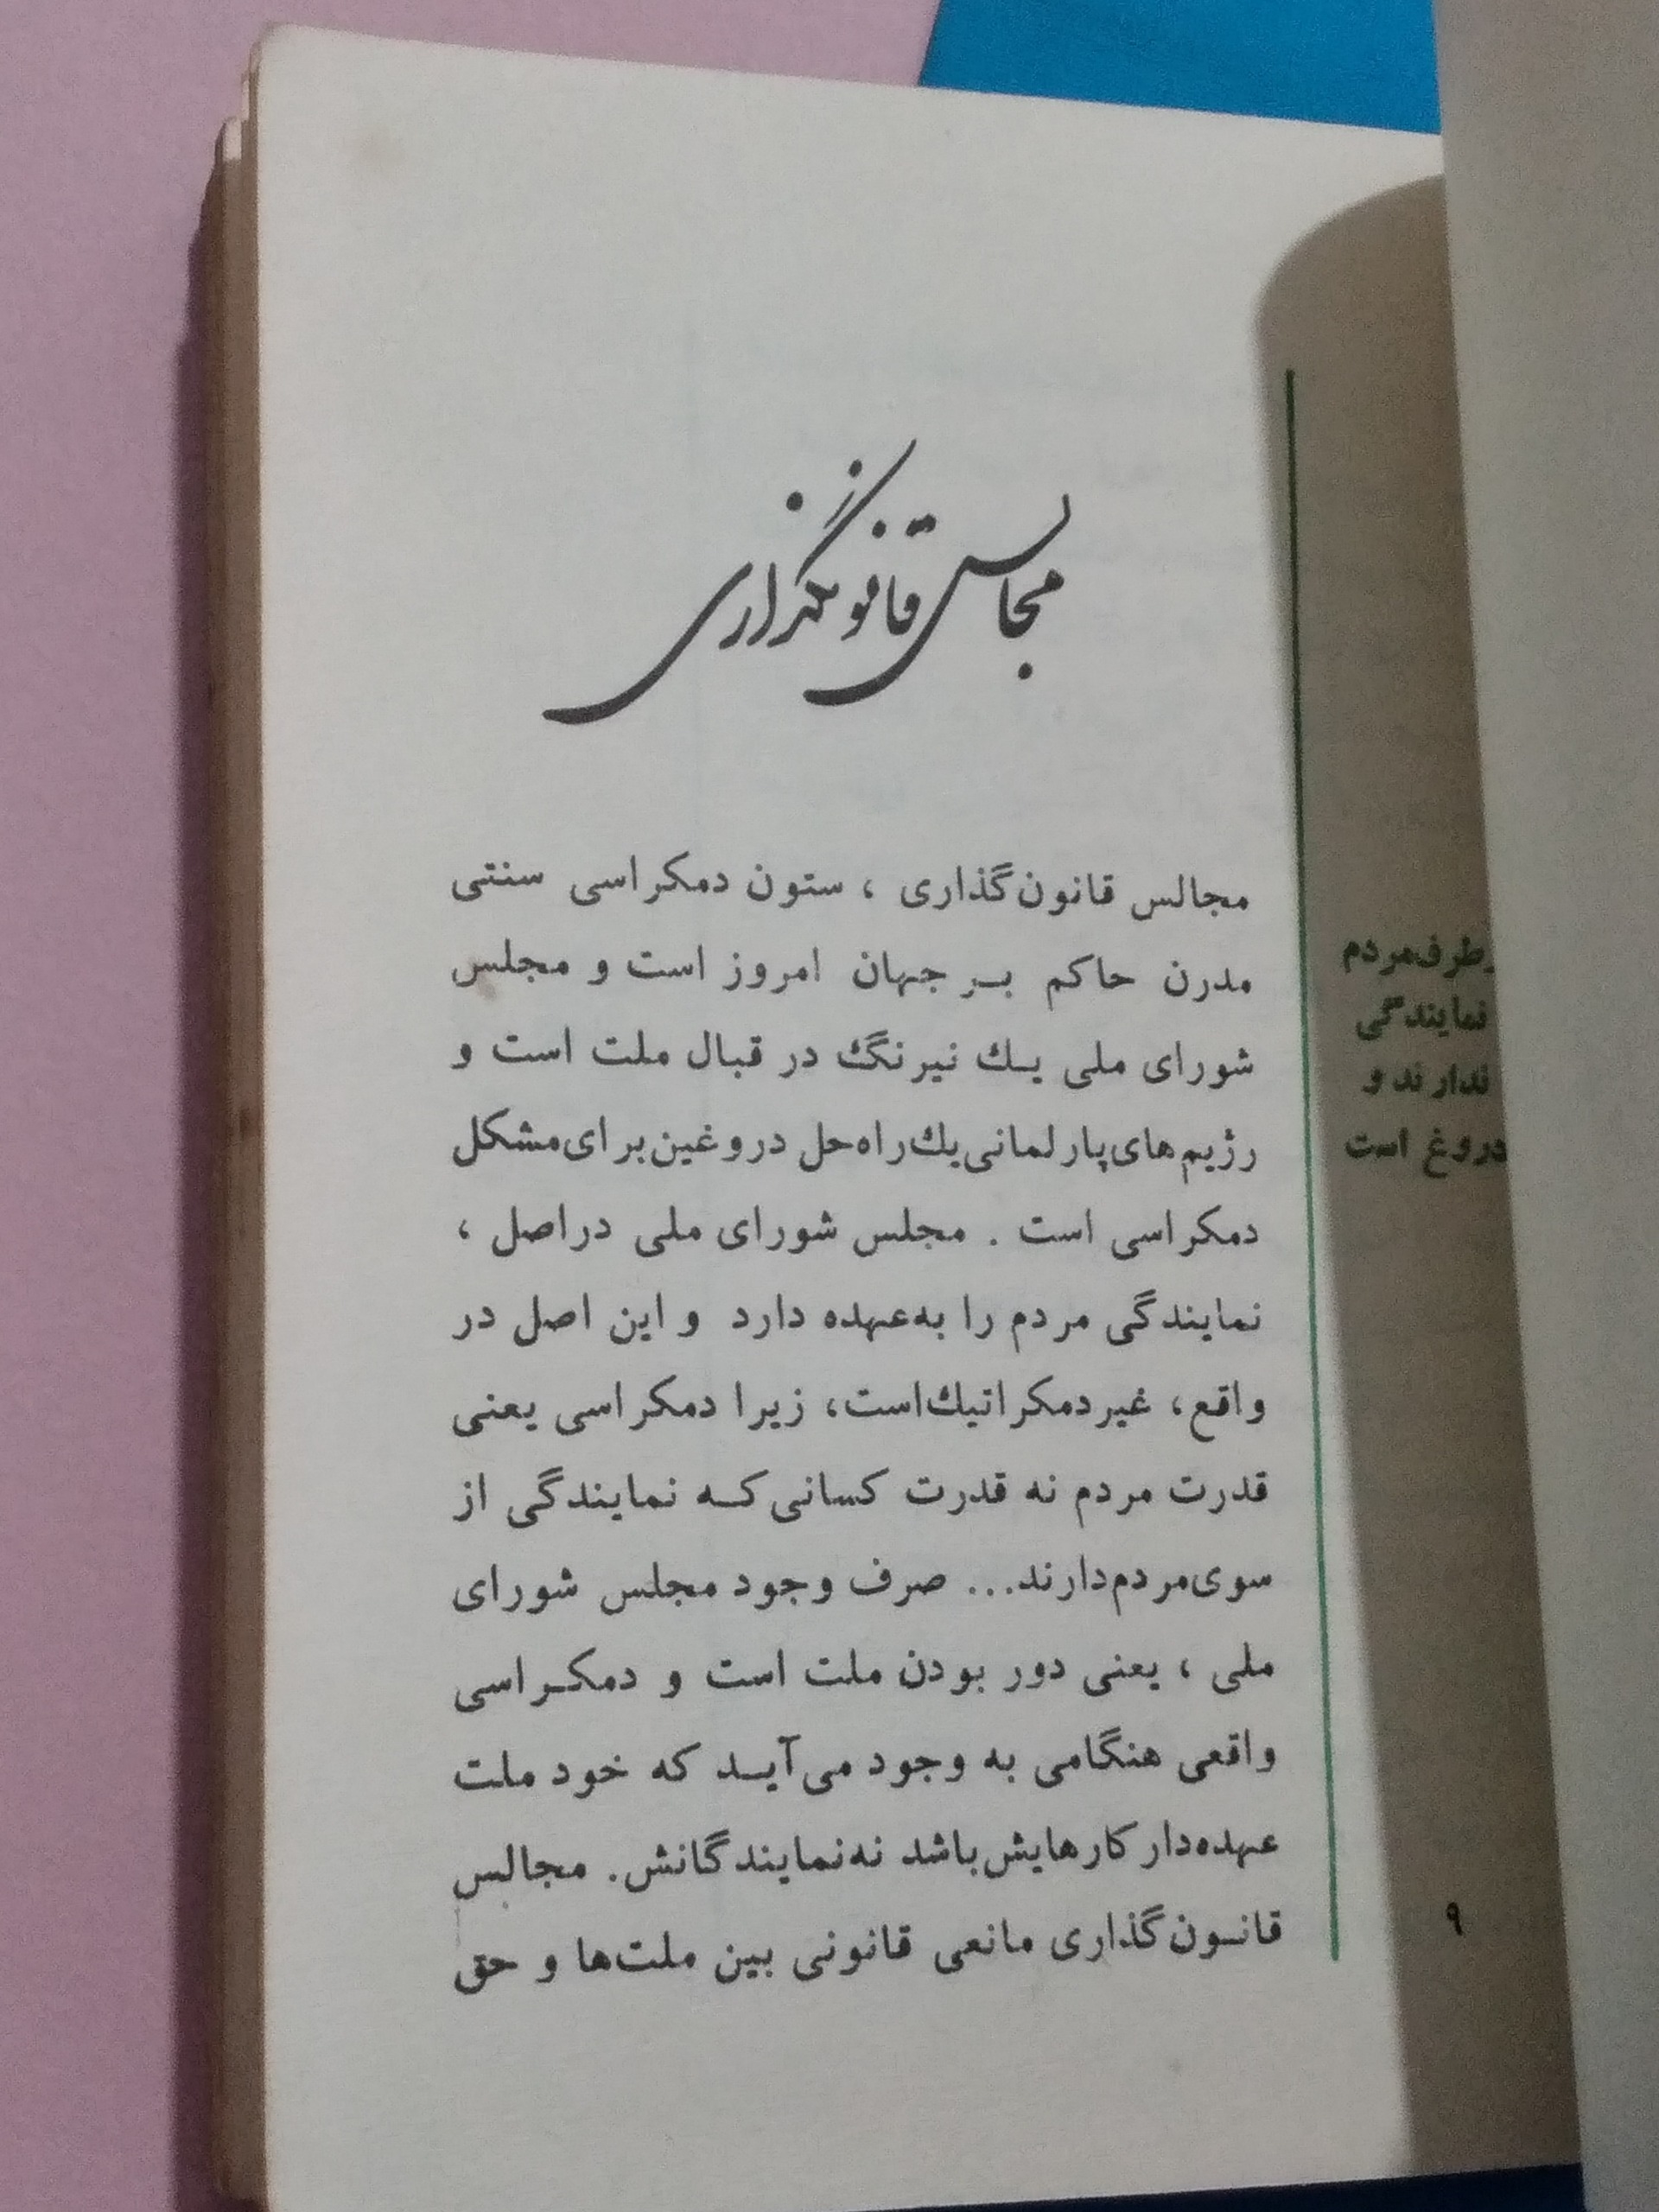 مجالس قانونگذاری
مجالس قانون‌گذاری ، ستون دمکراسی سنتی
مدرن حاکم بـر جهان امروز است و مجلس
شورای ملی یـك نیرنگ در قبال ملت است و
رژیم‌های‌پارلمانی‌یك‌راه‌حل دروغین‌برای‌مشکل
دمکراسی است . مجلس شورای ملی دراصل ،
نمایندگی مردم را به‌عهده دارد و این اصل در
واقع، غیردمکراتیك‌است، زیرا دمکراسی یعنی
قدرت مردم نه قدرت کسانی‌کـه نمایندگی از
سوی‌مردم‌دارند... صرف وجود مجلس شورای
ملی ، یعنی دور بودن ملت است و دمکـراسی
واقعی هنگامی به وجود می‌آیـد که خود ملت
عهده‌دار کارهایش‌باشد نه‌نمایندگانش. مجالس
قانـون‌گذاری مانعی قانونی بین ملت‌ها و حق
طرف‌مردم
نمایندگی
ندارند و
دروغ است
۹